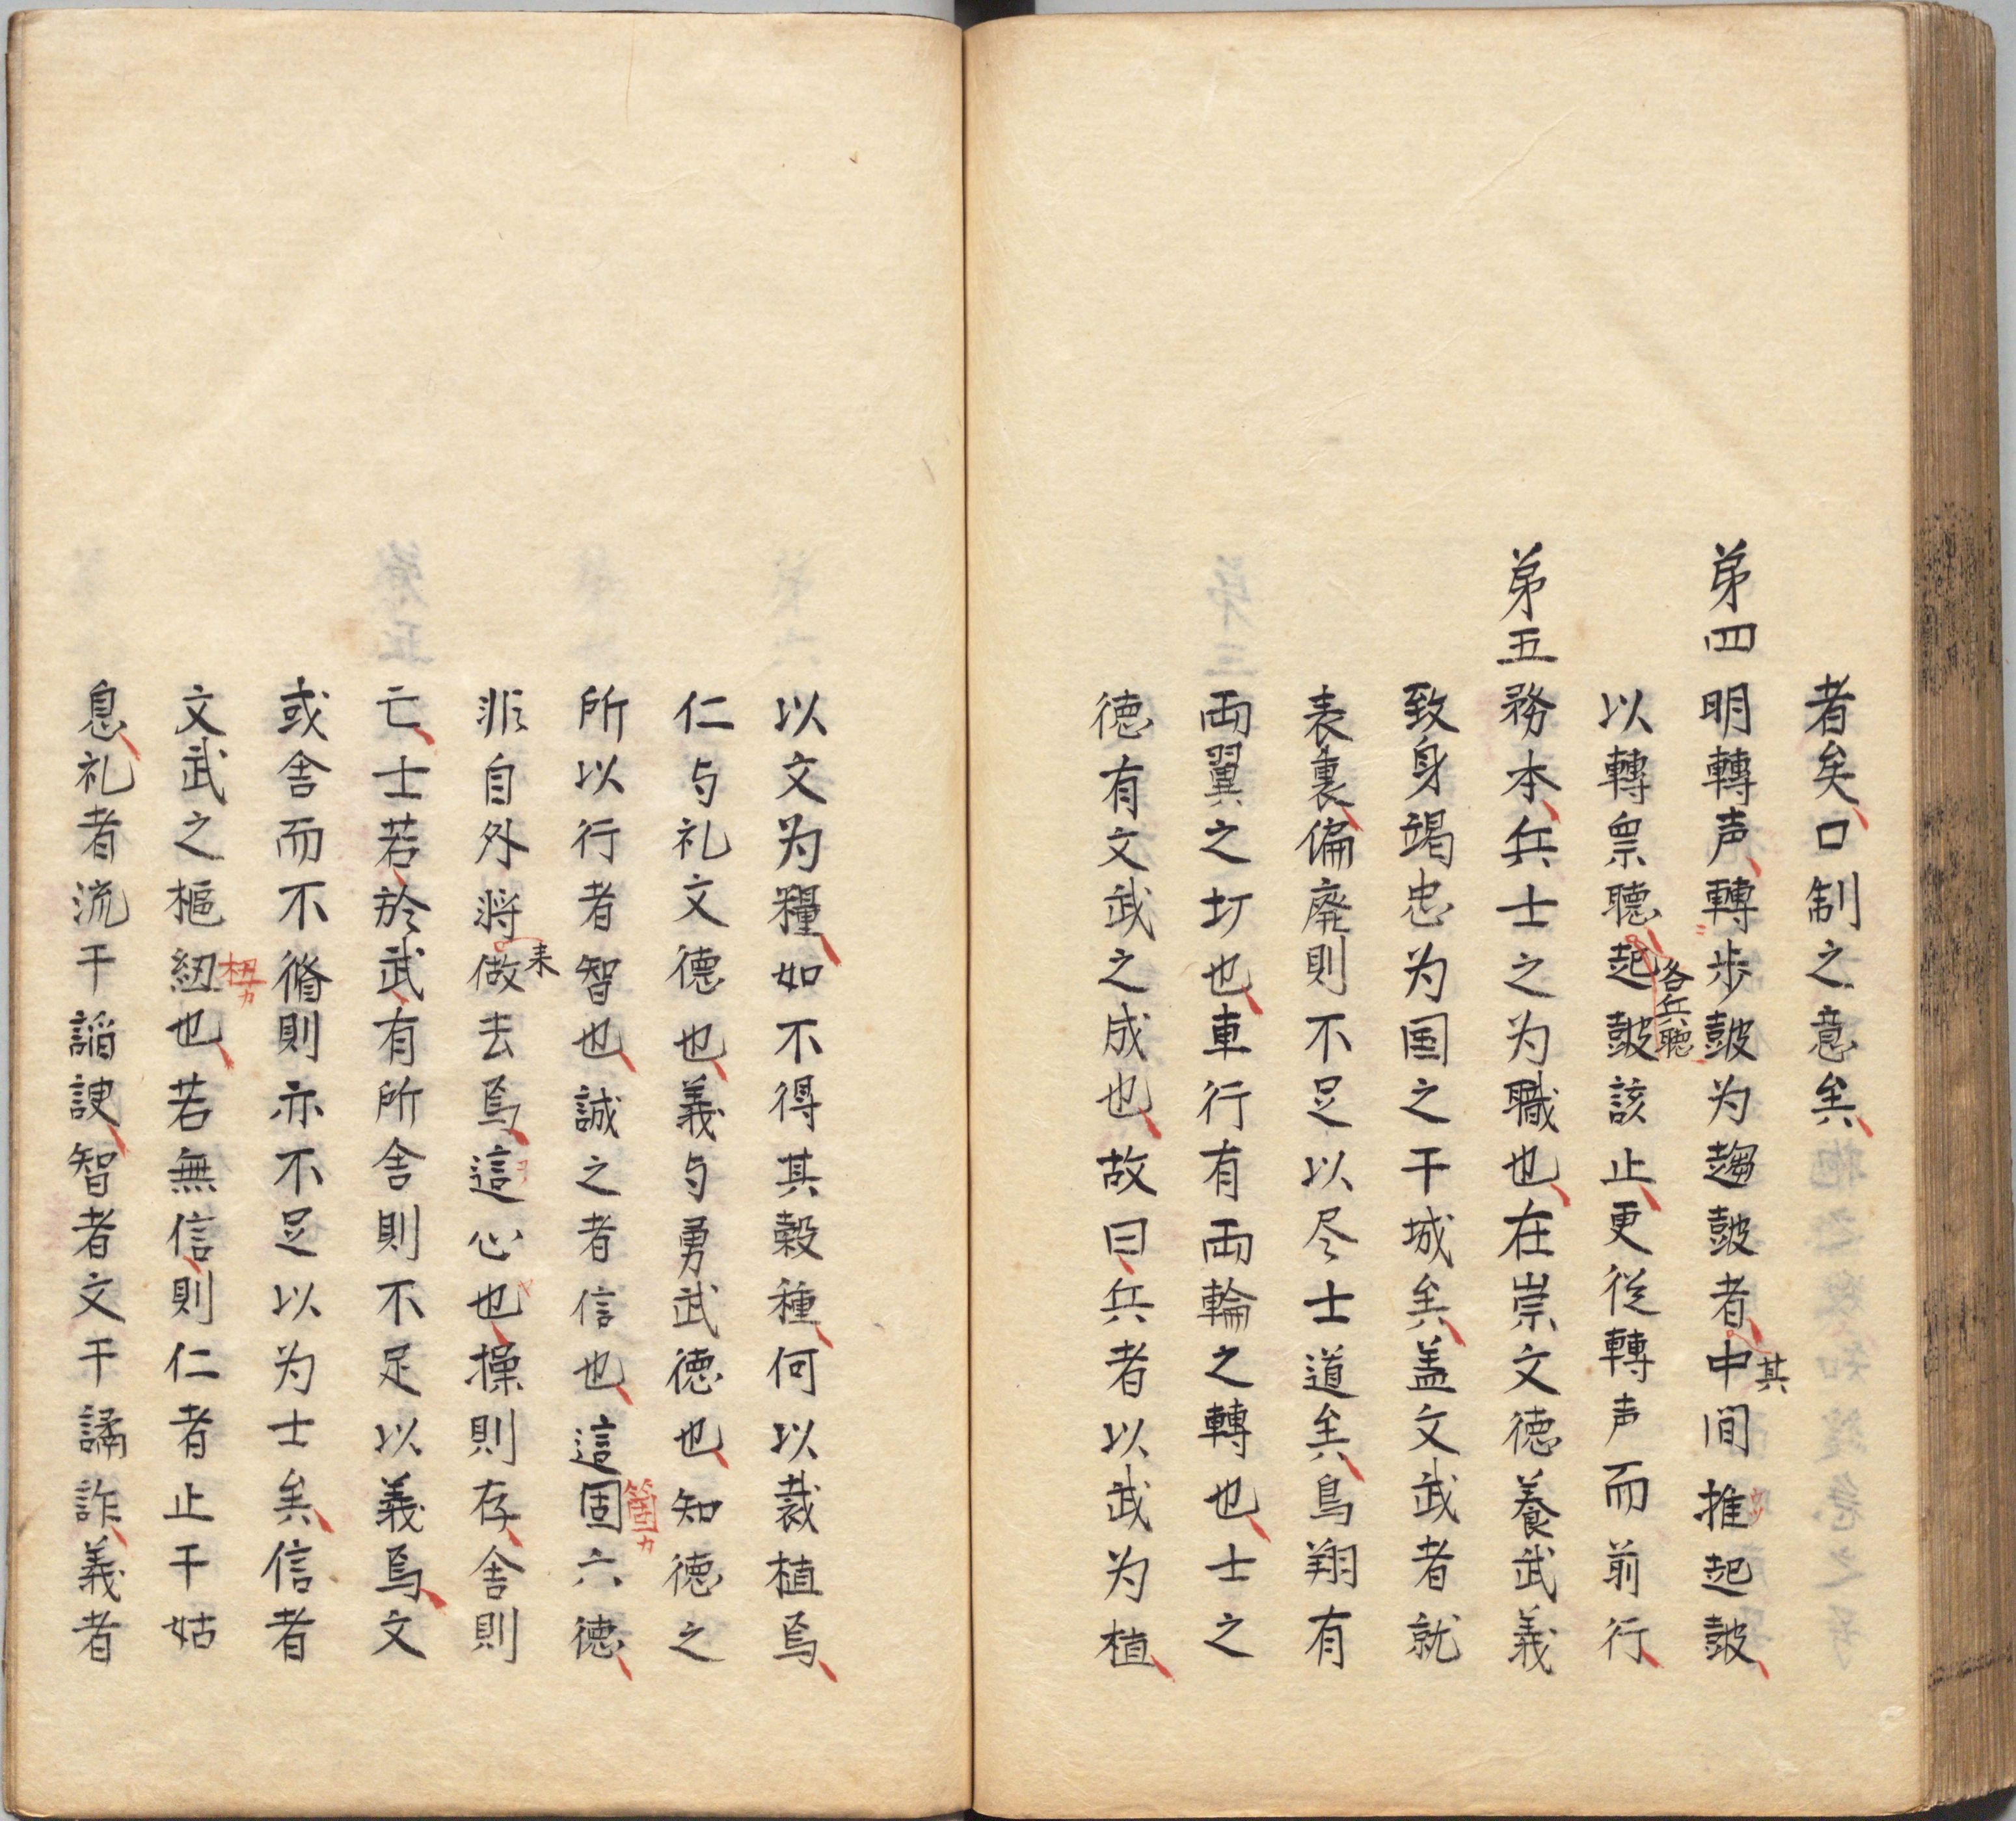 者矣口制之意矣
弟四明轉声轉步皷为趨皷者其中間推起皷
以轉票聴各兵聴起皷該止更従轉声而前行
弟五務本兵士之为職也在崇文徳養武義
致身竭忠为国之干城矣盖文武者就
表裏偏廃則不足以尽士道矣鳥翔有
両翼之圢也車行有両輪之轉也士之
徳有文武之成也故曰兵者以武为植
以文为糧如不得其穀種何以裁植焉
仁与礼文德也義与勇武徳也知徳之
所以行者智也誠之者信也這固箇カ六徳
非自外将来做去焉這心也操則存舎則
亡士若於武有所舎則不足以義焉文
或舎而不脩則亦不足以为士矣信者
文武之樞紐杻カ也若無信則仁者止于姑
息礼者流于謟諛智者文于譎詐義者